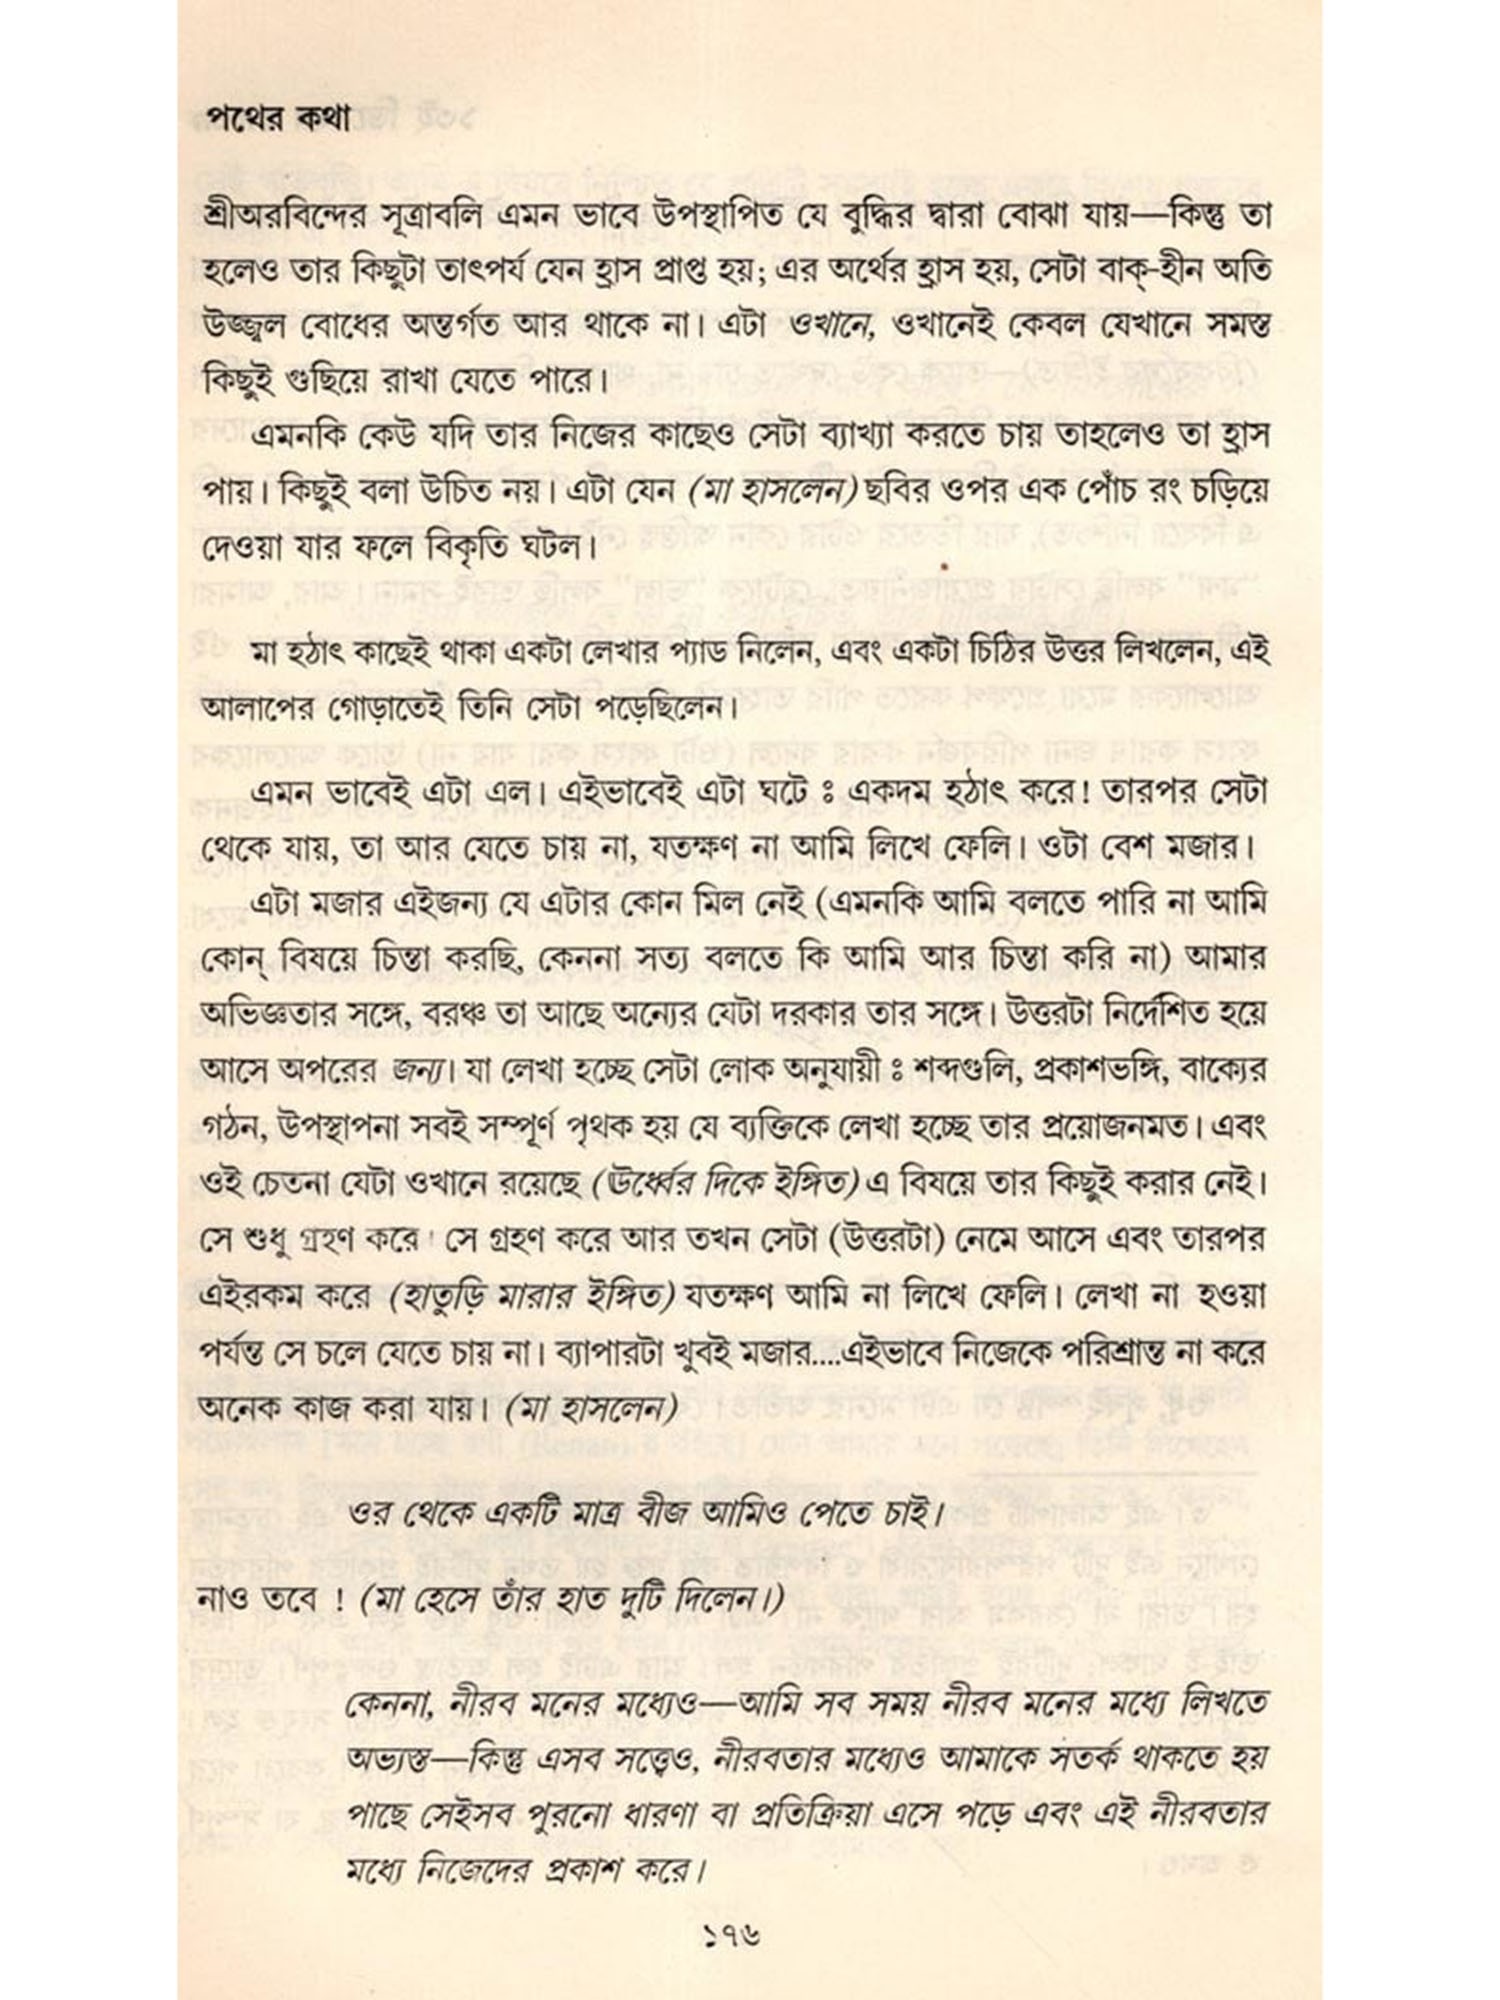 পথের কথা
শ্রীঅরবিন্দের সূত্রাবলি এমন ভাবে উপস্থাপিত যে বুদ্ধির দ্বারা বোঝা যায়—কিন্তু তা
হলেও তার কিছুটা তাৎপর্য যেন হ্রাস প্রাপ্ত হয়; এর অর্থের হ্রাস হয়, সেটা বাক্-হীন অতি
উজ্জ্বল বোধের অন্তর্গত আর থাকে না। এটা ওখানে, ওখানেই কেবল যেখানে সমস্ত
কিছুই গুছিয়ে রাখা যেতে পারে।
এমনকি কেউ যদি তার নিজের কাছেও সেটা ব্যাখ্যা করতে চায় তাহলেও তা হ্রাস
পায়। কিছুই বলা উচিত নয়। এটা যেন (মা হাসলেন) ছবির ওপর এক পোঁচ রং চড়িয়ে
দেওয়া যার ফলে বিকৃতি ঘটল।
মা হঠাৎ কাছেই থাকা একটা লেখার প্যাড নিলেন, এবং একটা চিঠির উত্তর লিখলেন, এই
আলাপের গোড়াতেই তিনি সেটা পড়েছিলেন।
এমন ভাবেই এটা এল। এইভাবেই এটা ঘটে ঃ একদম হঠাৎ করে! তারপর সেটা
থেকে যায়, তা আর যেতে চায় না, যতক্ষণ না আমি লিখে ফেলি। ওটা বেশ মজার।
এটা মজার এইজন্য যে এটার কোন মিল নেই (এমনকি আমি বলতে পারি না আমি
কোন্ বিষয়ে চিন্তা করছি, কেননা সত্য বলতে কি আমি আর চিন্তা করি না) আমার
অভিজ্ঞতার সঙ্গে, বরঞ্চ তা আছে অন্যের যেটা দরকার তার সঙ্গে। উত্তরটা নির্দেশিত হয়ে
আসে অপরের জন্য। যা লেখা হচ্ছে সেটা লোক অনুযায়ী ঃ শব্দগুলি, প্রকাশভঙ্গি, বাক্যের
গঠন, উপস্থাপনা সবই সম্পূর্ণ পৃথক হয় যে ব্যক্তিকে লেখা হচ্ছে তার প্রয়োজনমত। এবং
ওই চেতনা যেটা ওখানে রয়েছে (ঊর্ধ্বের দিকে ইঙ্গিত) এ বিষয়ে তার কিছুই করার নেই।
সে শুধু গ্রহণ করে। সে গ্রহণ করে আর তখন সেটা (উত্তরটা) নেমে আসে এবং তারপর
এইরকম করে (হাতুড়ি মারার ইঙ্গিত) যতক্ষণ আমি না লিখে ফেলি। লেখা না হওয়া
পর্যন্ত সে চলে যেতে চায় না। ব্যাপারটা খুবই মজার....এইভাবে নিজেকে পরিশ্রান্ত না করে
অনেক কাজ করা যায়। (মা হাসলেন)
ওর থেকে একটি মাত্র বীজ আমিও পেতে চাই।
নাও তবে ! (মা হেসে তাঁর হাত দুটি দিলেন।)
কেননা, নীরব মনের মধ্যেও—আমি সব সময় নীরব মনের মধ্যে লিখতে
অভ্যস্ত—কিন্তু এসব সত্ত্বেও, নীরবতার মধ্যেও আমাকে সতর্ক থাকতে হয়
পাছে সেইসব পুরনো ধারণা বা প্রতিক্রিয়া এসে পড়ে এবং এই নীরবতার
মধ্যে নিজেদের প্রকাশ করে।
১৭৬